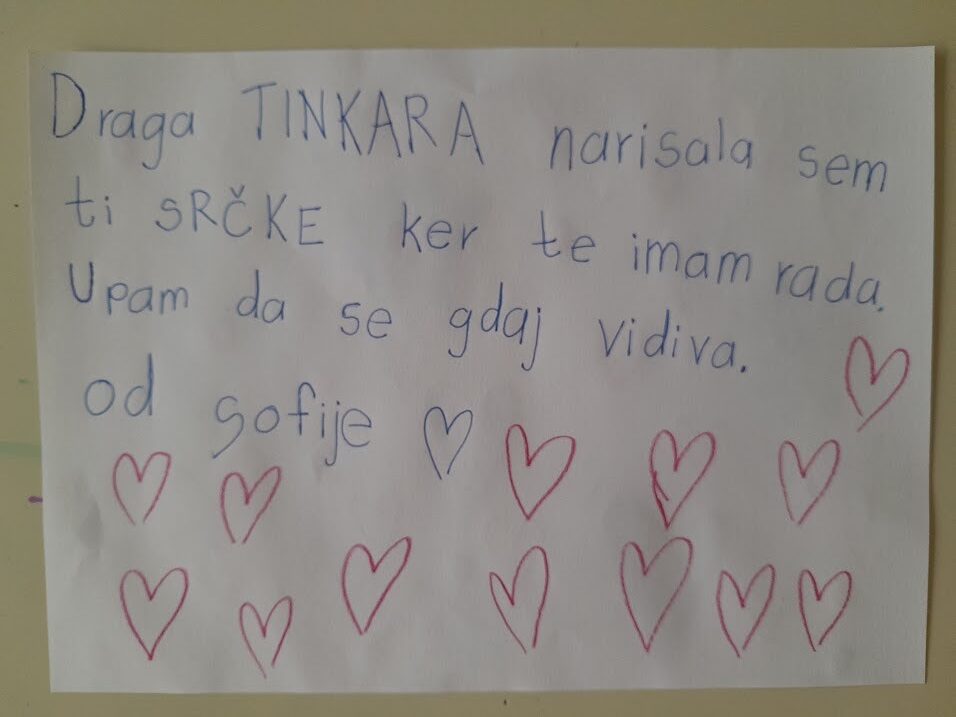 Draga TINKARA narisala sem
ti SRČKE ker te imam rada.
Upam da se gdaj vidiva.
od sofije